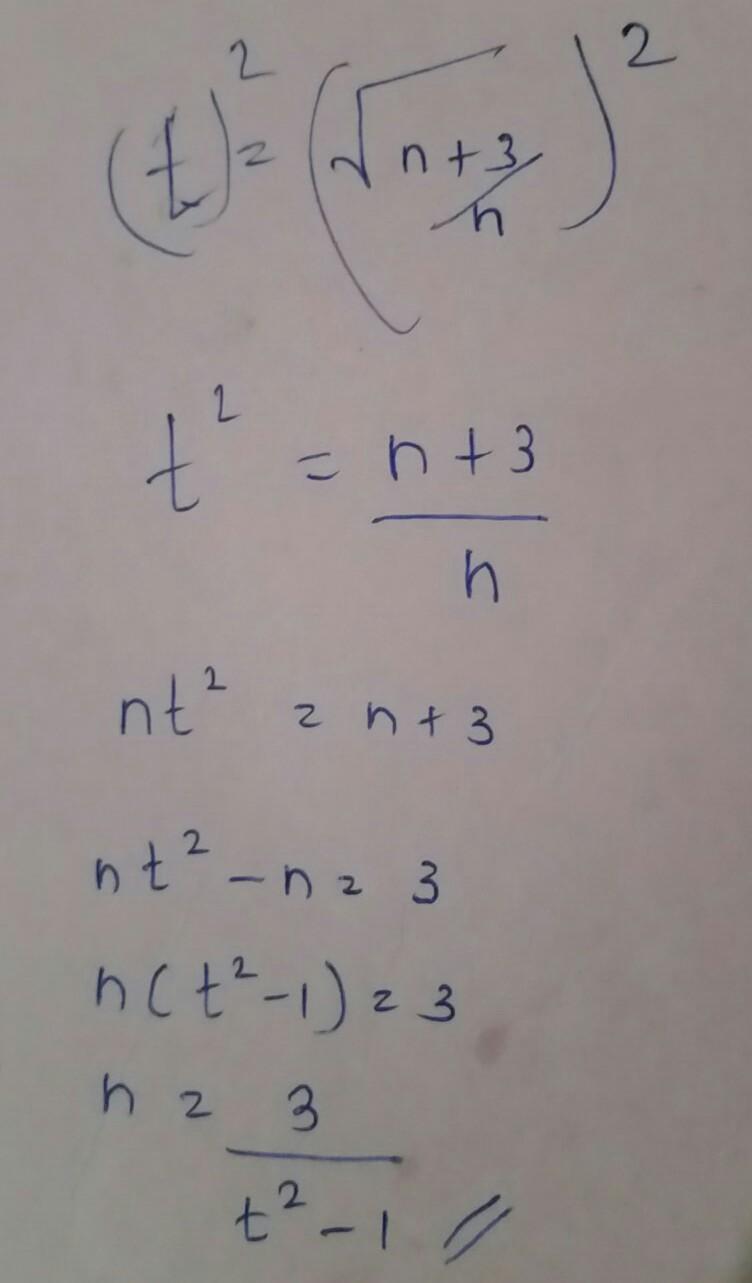 (t)² = (√n+3/n)²
t² = n+3
n
nt² = n+3
nt² - n = 3
n(t²-1) = 3
n = 3
t²-1 //